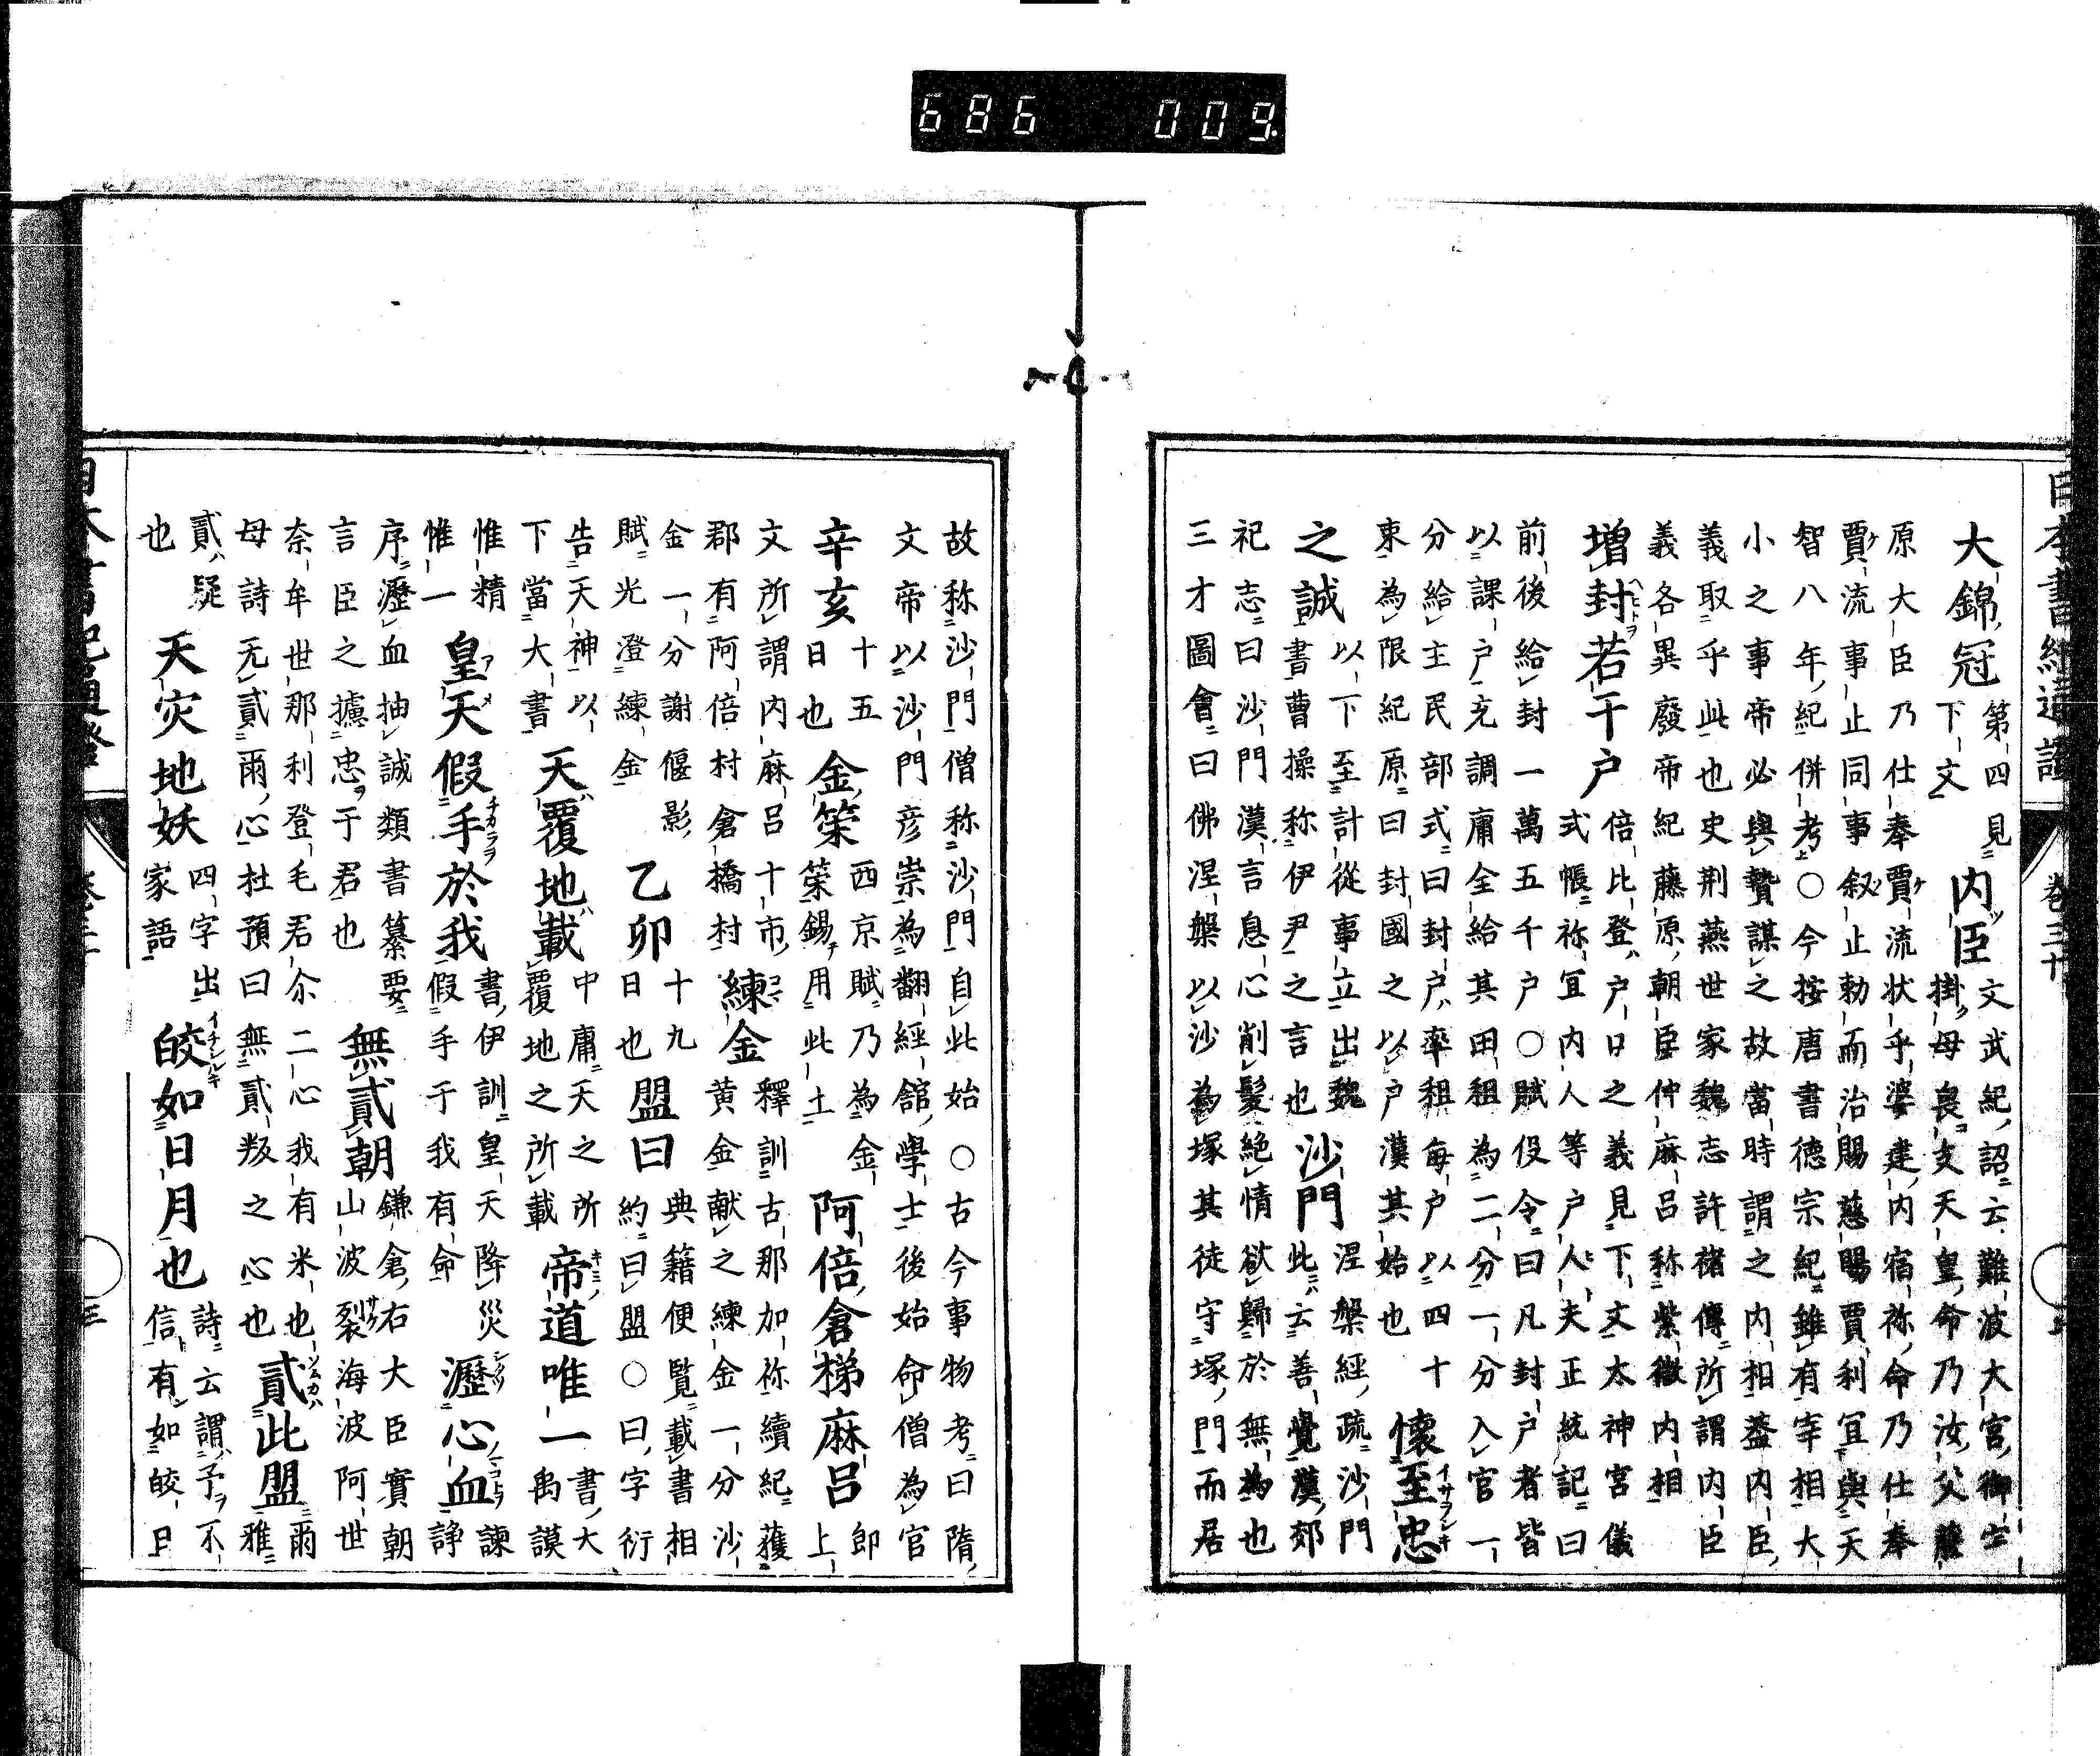 日本書紀通證 卷三十
大錦冠
第四見
下文
内臣
文武紀詔云難波大宮御宇
掛母畏支天皇命乃汝父藤
原大臣乃仕奉賈流状乎婆建内宿祢命乃仕奉
賈流事止同事叙止勅而治賜慈賜賈利宜與天
智八年紀併考〇今按唐書徳宗紀雖有宰相大
小之事帝必與贄謀之故當時謂之内相蓋内臣
義取乎此也史荊燕世家魏志許褚傳所謂内臣
義各異廢帝紀藤原朝臣仲麻呂称紫微内相
増封若干户
倍比登户口之義見下文太神宮儀
式帳祢宜内人等户人夫正統記曰
前後給封一萬五千户〇賦役令曰凡封户者皆
以課户充調庸全給其田租為二分一分入官一
分給主民部式曰封户率租毎户以四十
束為限紀原曰封國之以户漢其始也
懐至忠
之誠
以下至計從事立出魏
書曹操称伊尹之言也
沙門
涅槃經疏沙門
此云善覺漢郊
祀志曰沙門漢言息心削髮絶情欲歸於無為也
三才圖會曰佛涅槃以沙為塚其徒守塚門而居
故称沙門僧称沙門自此始〇古今事物考曰隋
文帝以沙門彦崇為翻經館學士後始命僧為官
辛亥
十五
日也
金策
西京賦乃為金
策錫用此土
阿倍倉梯麻呂
即
上
文所謂内麻呂十市
郡有阿倍村倉橋村
練金
釋訓古那加祢續紀獲
黄金献之練金一分沙
金一分謝偃影
賦光澄練金
乙卯
十九
日也
盟曰
典籍便覧載書相
約曰盟〇曰字衍
告天神以
下當大書
天覆地載
中庸天之所
覆地之所載
帝道唯一
書大
禹謨
惟精
惟一
皇天假手於我
書伊訓皇天降災
假手于我有命
瀝心血
諫
諍
序瀝血抽誠類書纂要
言臣之攄忠于君也
無貳朝
鎌倉右大臣實朝
山波裂海波阿世
奈牟世那利登毛君尓二心我有米也也
母詩无貳爾心杜預曰無貳叛之心也
貳此盟
爾
雅
貳疑
也
天灾地妖
四字出
家語
皎如日月也
詩云謂予不
信有如皎日
日本書紀通證 卷三十 三